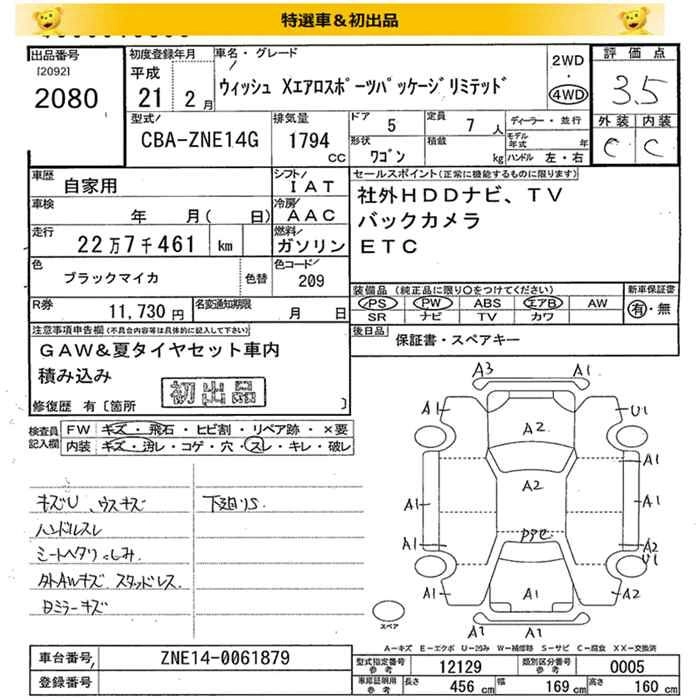 特選車＆初出品
出品番号
[2092]
2080
初度登録年月
平成
21 2月
車名・グレード
ウィッシュ Xエアロスポーツパッケージリミテッド
2WD
・
4WD
評価点
3.5
外装 内装
C C
型式
CBA-ZNE14G
排気量
1794
cc
ドア 5
定員 7人
形状 ワゴン
積載 kg
ディーラー・並行
モデル年式 年
ハンドル 左・右
車歴
自家用
シフト
IAT
車検
年 月( 日)
冷房
AAC
走行
22万7千461 km
燃料
ガソリン
色
ブラックマイカ
色替
色コード
209
セールスポイント(正常に機能するものに限ります)
社外HDDナビ、TV
バックカメラ
ETC
装備品(純正品に限り○をつけてください)
PS PW ABS エアB AW
SR ナビ TV カワ
新車保証書
有・無
R券
11,730円
名変通知期限
月 日
後日品
保証書・スペアキー
注意事項申告欄(不具合内容等は具体的に記入して下さい)
GAW&夏タイヤセット車内
積み込み
初出品
修復歴 有〔箇所 〕
検査員記入欄
FW キズ・飛石・ヒビ割・リペア跡・×要
内装 キズ・汚レ・コゲ・穴・スレ・キレ・破レ
キズU、ウスキズ
下廻りS
ハンドルスレ
シートヘタリ、しみ
外AWキズ スタッドレス
A3 A1
A1 A2 U1
A1 A2 A1
A1 A1
A1 A2
U1
A1 A1 A1
A1 A1
スペア
A－キズ E－エクボ U－凹み W－補修跡 S－サビ C－腐食 XX－交換済
車台番号
ZNE14-0061879
登録番号
型式指定番号
参考
12129
類別区分番号
参考
0005
車庫証明用
参考
長さ 456cm
幅 169cm
高さ 160cm